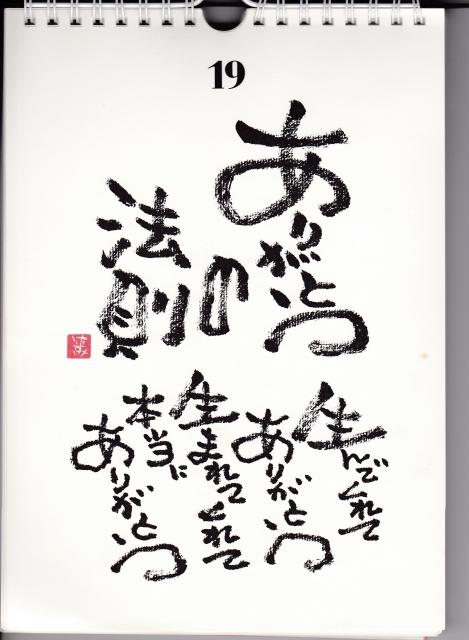 19
ありがとう
の
法則
生んでくれて
ありがとう
生まれてくれて
本当に
ありがとう